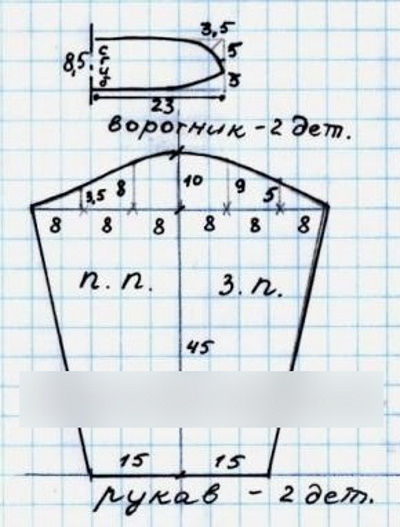 3,5
5
8,5 сгиб 3
23
воротник - 2 дет.
3,5 8 10 9 5
8 8 8 8 8 8
п. п. з. п.
45
15 15
рукав - 2 дет.